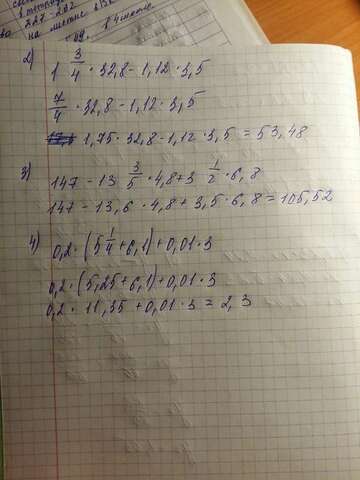 на листке
2) 1 3/4 · 32,8 - 1,12 · 3,5
7/4 · 32,8 - 1,12 · 3,5
1,75 · 32,8 - 1,12 · 3,5 = 53,48
3) 147 - 13 3/5 · 4,8 + 3 1/2 · 6,8
147 - 13,6 · 4,8 + 3,5 · 6,8 = 105,52
4) 0,2 · (5 1/4 + 6,1) + 0,01 · 3
0,2 · (5,25 + 6,1) + 0,01 · 3
0,2 · 11,35 + 0,01 · 3 = 2,3